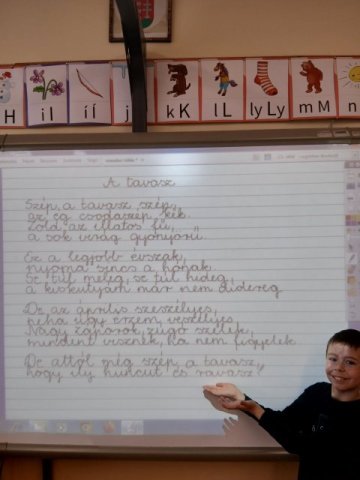 H
i I
í Í
j
k K
l L
ly Ly
m M
n
A tavasz
Szép a tavasz, szép,
az ég csodaszép, kék.
Zöld az illatos fű,
a sok virág gyönyörű.
Ez a legjobb évszak,
nyoma sincs a hónak.
Se túl meleg, se túl hideg,
a kiskutyám már nem didereg.
De az április szeszélyes,
néha úgy érzem, veszélyes.
Nagy záporok, zúgó szelek,
mindent visznek, ha nem figyelek.
De attól még szép a tavasz,
hogy ily huncut és ravasz!